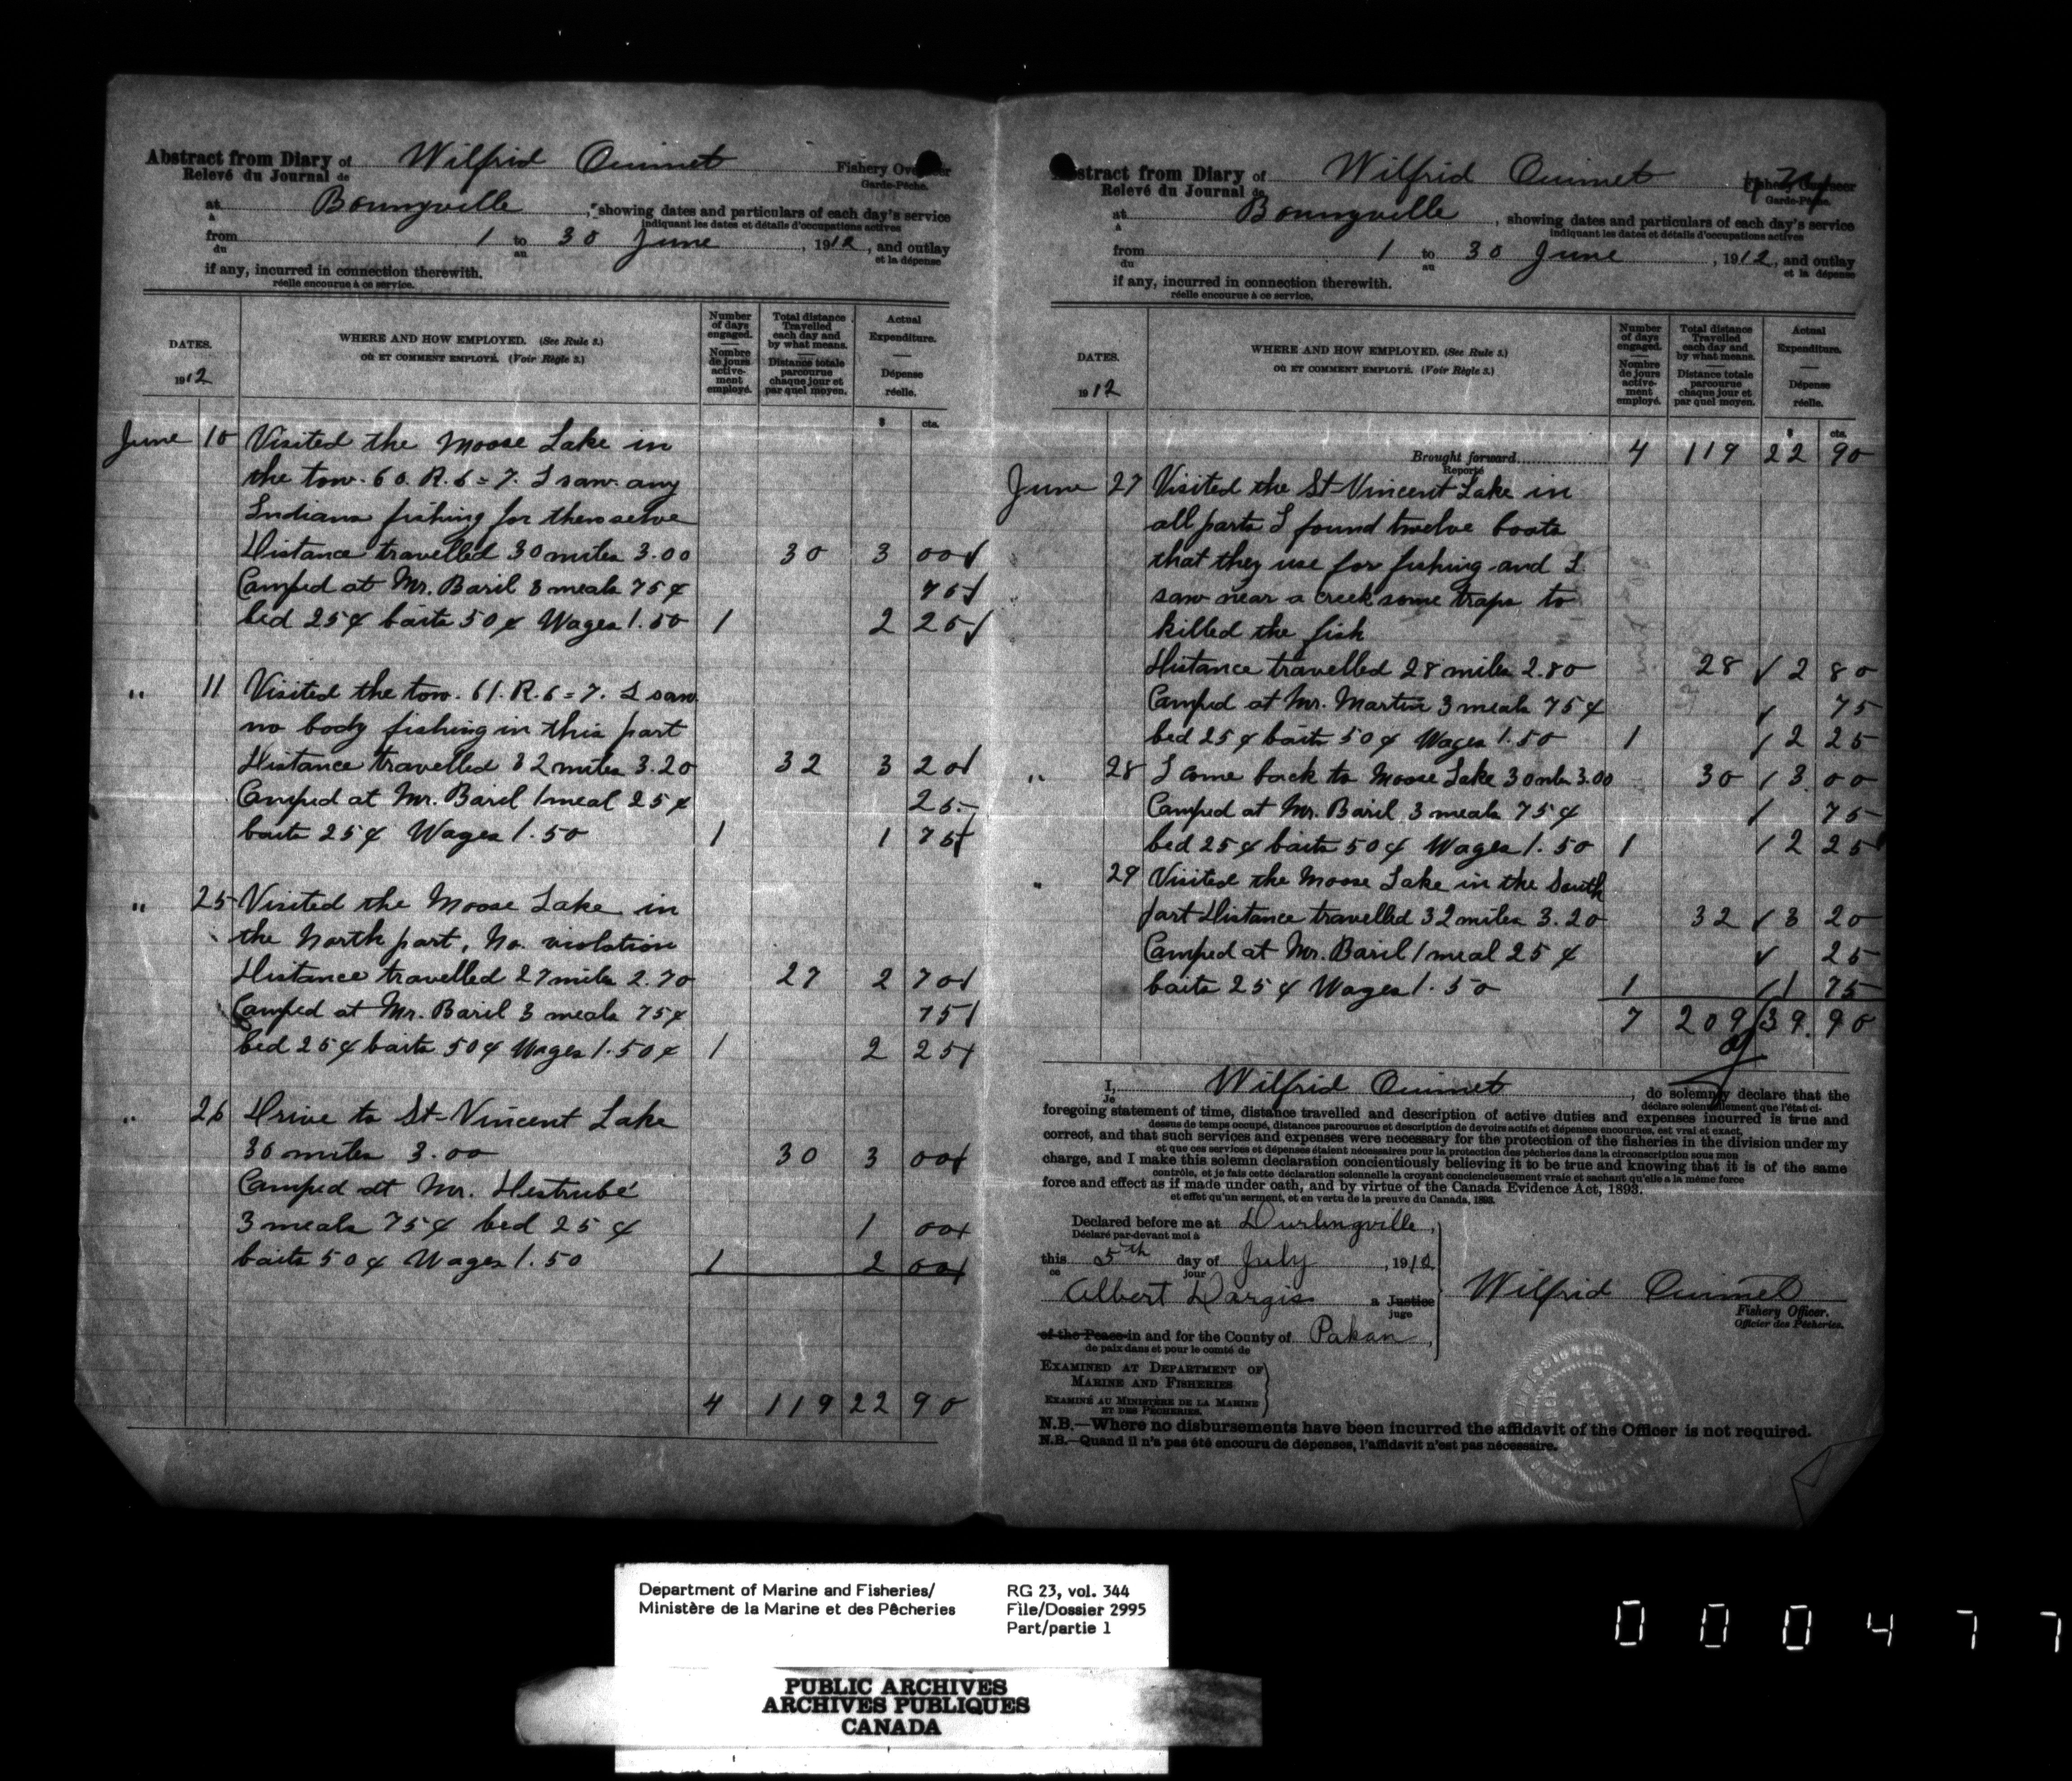 Abstract from Diary of Wilfrid Ouimet Fishery Overseer
Relevé du Journal de Garde-Pêche.
at Bonnyville, showing dates and particulars of each day's service
à indiquant les dates et détails d'occupations actives
from 1 to 30 June, 1912, and outlay
du au et la dépense
if any, incurred in connection therewith.
réelle encourue à ce service.
DATES.
1912
WHERE AND HOW EMPLOYED. (See Rule 3.)
OÙ ET COMMENT EMPLOYÉ. (Voir Règle 3.)
Number of days engaged.
Nombre de jours activement employé.
Total distance Travelled each day and by what means.
Distance totale parcourue chaque jour et par quel moyen.
Actual Expenditure.
Dépense réelle.
$ cts.
June 10 Visited the Moose Lake in
the tow. 60. R. 6=7. I saw any
Indians fishing for themselve
Distance travelled 30 miles 3.00 30 3 00
Camped at Mr. Baril 3 meals 75¢ 75
bed 25¢ baits 50¢ Wages 1.50 1 2 25
" 11 Visited the tow. 61. R. 6=7. I saw
no body fishing in this part
Distance travelled 32 miles 3.20 32 3 20
Camped at Mr. Baril 1 meal 25¢ 25
baits 25¢ Wages 1.50 1 1 75
" 25 Visited the Moose Lake in
the North part, No. violation
Distance travelled 27 miles 2.70 27 2 70
Camped at Mr. Baril 3 meals 75¢ 75
bed 25¢ baits 50¢ Wages 1.50¢ 1 2 25
" 26 Drive to St-Vincent Lake
30 miles 3.00 30 3 00
Camped at Mr. Destrubé
3 meals 75¢ bed 25¢ 1 00
baits 50¢ Wages 1.50 1 2 00
4 119 22 90
Abstract from Diary of Wilfrid Ouimet Fishery Overseer
Relevé du Journal de Garde-Pêche.
at Bonnyville, showing dates and particulars of each day's service
à indiquant les dates et détails d'occupations actives
from 1 to 30 June, 1912, and outlay
du au et la dépense
if any, incurred in connection therewith.
réelle encourue à ce service.
DATES.
1912
WHERE AND HOW EMPLOYED. (See Rule 3.)
OÙ ET COMMENT EMPLOYÉ. (Voir Règle 3.)
Number of days engaged.
Nombre de jours activement employé.
Total distance Travelled each day and by what means.
Distance totale parcourue chaque jour et par quel moyen.
Actual Expenditure.
Dépense réelle.
$ cts.
Brought forward 4 119 22 90
Reporté
June 27 Visited the St-Vincent Lake in
all parts I found twelve boats
that they use for fishing and I
saw near a creek some traps to
killed the fish
Distance travelled 28 miles 2.80 28 2 80
Camped at Mr. Martin 3 meals 75¢ 75
bed 25¢ baits 50¢ Wages 1.50 1 2 25
" 28 I come back to Moose Lake 30 mls 3.00 30 3 00
Camped at Mr. Baril 3 meals 75¢ 75
bed 25¢ baits 50¢ Wages 1.50 1 2 25
" 29 Visited the Moose Lake in the South
part Distance travelled 32 miles 3.20 32 3 20
Camped at Mr. Baril 1 meal 25¢ 25
baits 25¢ Wages 1.50 1 1 75
7 209 39.90
I, Wilfrid Ouimet, do solemnly declare that the
Je déclare solennellement que l'état ci-
foregoing statement of time, distance travelled and description of active duties and expenses incurred is true and
dessus de temps occupé, distances parcourues et description de devoirs actifs et dépenses encourues, est vrai et exact,
correct, and that such services and expenses were necessary for the protection of the fisheries in the division under my
et que ces services et dépenses étaient nécessaires pour la protection des pêcheries dans la circonscription sous mon
charge, and I make this solemn declaration concientiously believing it to be true and knowing that it is of the same
contrôle, et je fais cette déclaration solennelle la croyant conciencieusement vraie et sachant qu'elle a la même force
force and effect as if made under oath, and by virtue of the Canada Evidence Act, 1893.
et effet qu'un serment, et en vertu de la preuve du Canada, 1893.
Declared before me at Durlingville,
Déclaré par-devant moi à
this 5th day of July, 1912
ce jour
Albert Dargis a Justice
juge
of the Peace in and for the County of Pakan,
de paix dans et pour le comté de
Wilfrid Ouimet
Fishery Officer.
Officier des Pêcheries.
EXAMINED AT DEPARTMENT OF
MARINE AND FISHERIES
EXAMINÉ AU MINISTÈRE DE LA MARINE
ET DES PÊCHERIES.
N.B.—Where no disbursements have been incurred the affidavit of the Officer is not required.
N.B.—Quand il n'a pas été encouru de dépenses, l'affidavit n'est pas nécessaire.
Department of Marine and Fisheries/
Ministère de la Marine et des Pêcheries
RG 23, vol. 344
File/Dossier 2995
Part/partie 1
PUBLIC ARCHIVES
ARCHIVES PUBLIQUES
CANADA
000477